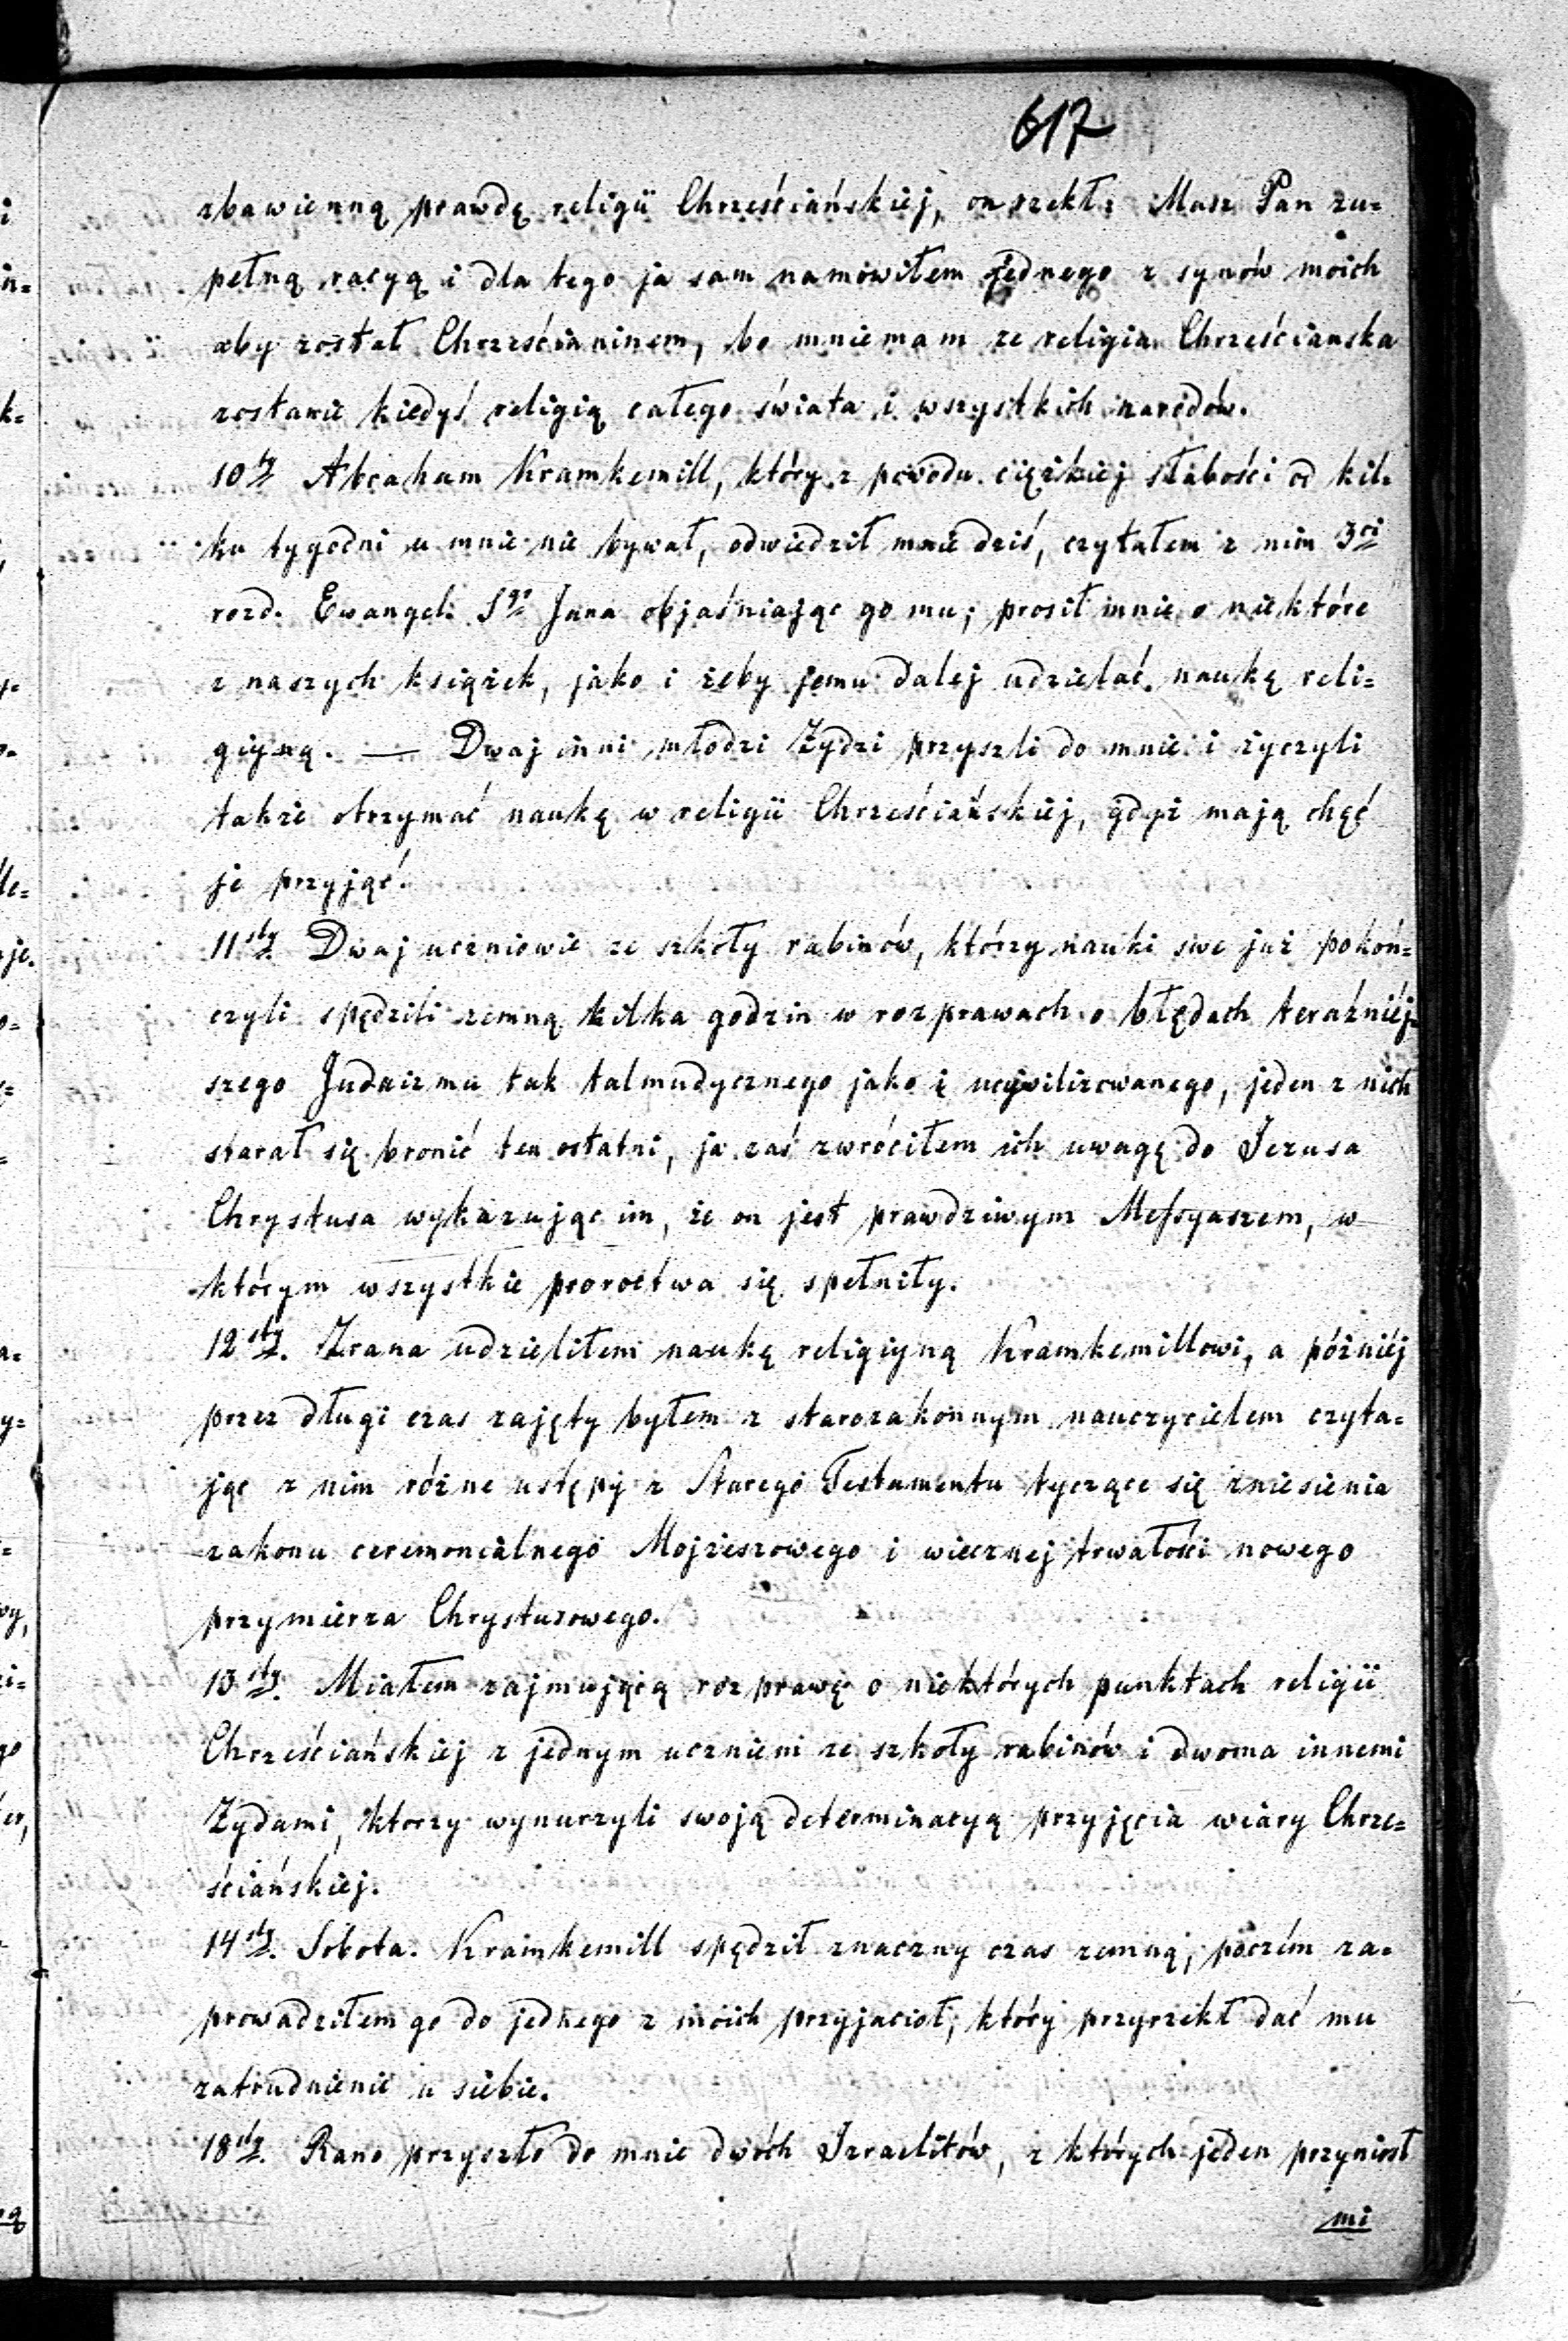 617
zbawienną prawdę religii Chrześciańskiej, on rzekł: Masz Pan zu=
pełną racyą i dla tego ja sam namówiłem jednego z synów moich
aby został Chrześcianinem, bo mniemam ze religia Chrześcianska
zostanie kiedyś religią całego świata i wszystkich narodów.
10ty Abraham Kramkemill, który z powodu ciężkiej słabości od kil=
ku tygodni u mnie nie bywał, odwiedził mnie dziś, czytałem z nim 3ci
rozd. Ewangeli Sgo Jana objaśniając go mu; prosił mnie o niektóre
z naszych książek, jako i żeby jemu dalej udzielać naukę reli=
giyną. — Dwaj inni młodzi Żydzi przyszli do mnie i życzyli
także otrzymać naukę w religii Chrześciańskiej, gdyż mają chęć
je przyjąć.
11sty Dwaj uczniowie ze szkoły rabinów, którzy nauki swe już pokoń=
czyli spędzili zemną kilka godzin w rozprawach o błędach teraźniéj=
szego Judaizmu tak talmudycznego jako i ucywilizowanego, jeden z nich
starał się bronić ten ostatni, ja zaś zwróciłem ich uwagę do Jezusa
Chrystusa wykazując im, że on jest prawdziwym Messyaszem, w
którym wszystkie proroctwa się spełniły.
12sty. Zrana udzieliłem naukę religiyną Kramkemillowi, a późniéj
przez długi czas zajęty byłem z starozakonnym nauczycielem czyta=
jąc z nim różne ustępy z Starego Testamentu tyczące się zniesienia
zakonu ceremonialnego Mojzeszowego i wiecznej trwałości nowego
przymierza Chrystusowego.
13sty. Miałem zajmującą rozprawę o niektórych punktach religii
Chrześciańskiej z jednym uczniem ze szkoły rabinów i dwoma innemi
Żydami, ktorzy wynurzyli swoją determinacyą przyjęcia wiary Chrze=
ściańskiej.
14sty. Sobota. Kramkemill spędził znaczny czas zemną, poczém za=
prowadziłem go do jednego z moich przyjaciół, który przyrzekł dać mu
zatrudnienie u siebie.
18sty. Rano przyszło do mnie dwóch Izraelitów, z których jeden przyniosł
mi